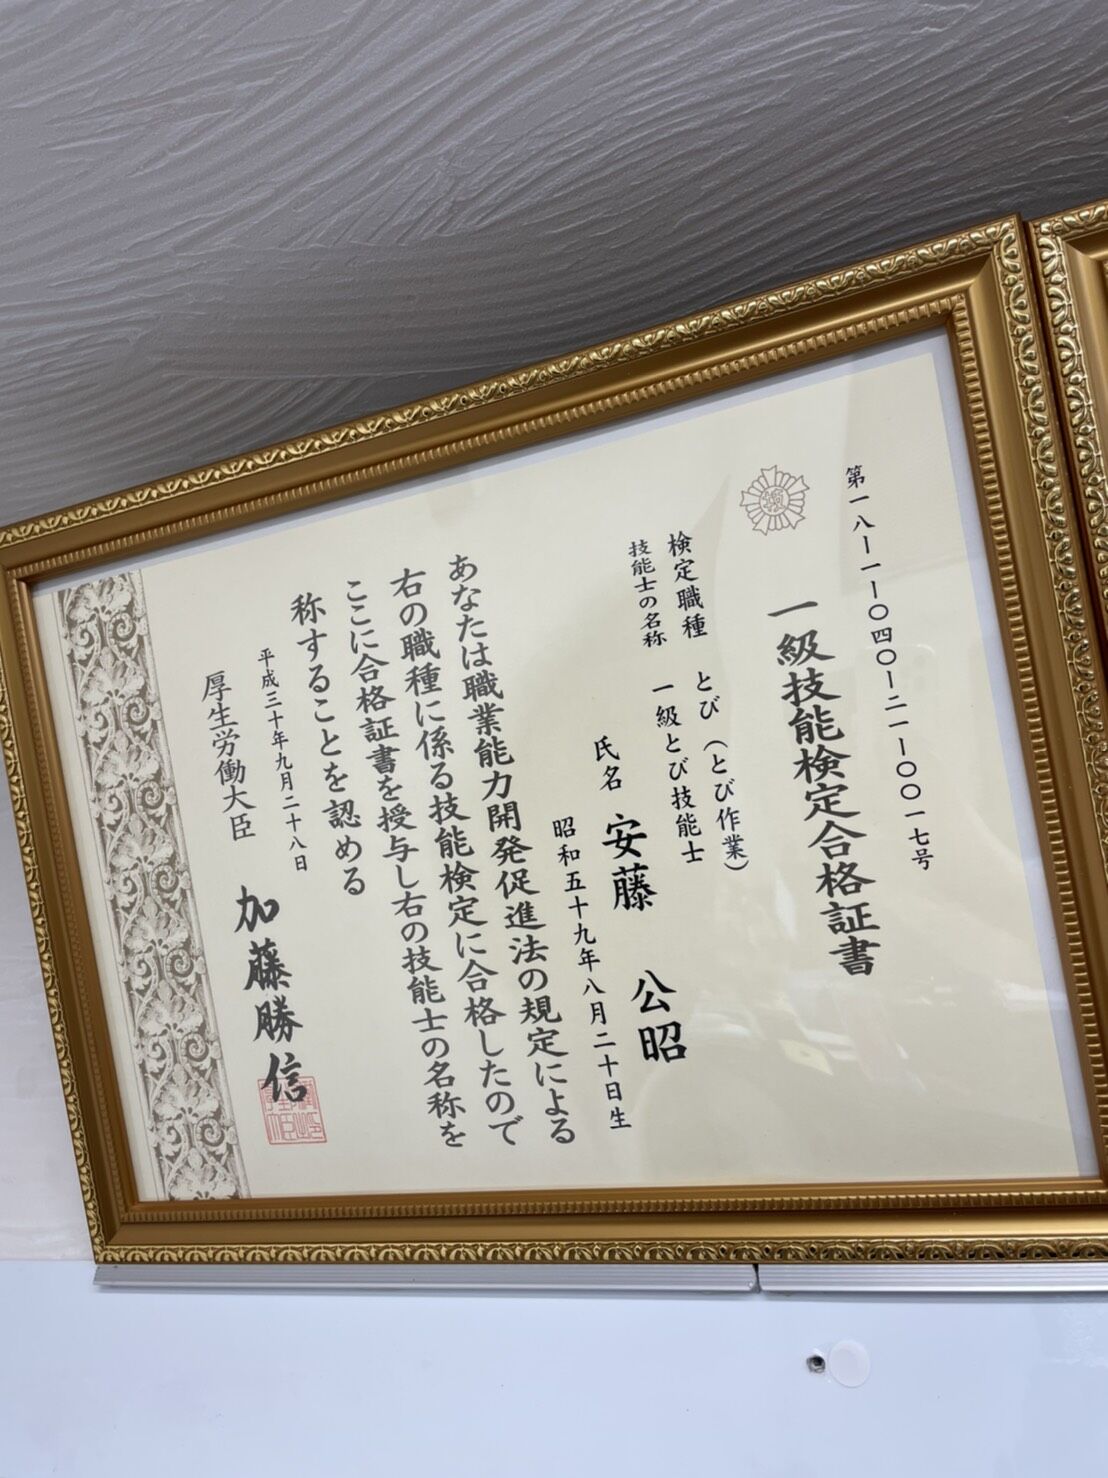 第一八ー一ー〇四〇ー二一ー〇〇一七号
一級技能検定合格証書
検定職種 とび（とび作業）
技能士の名称 一級とび技能士
氏名 安藤 公昭
昭和五十九年八月二十日生
あなたは職業能力開発促進法の規定による
右の職種に係る技能検定に合格したので
ここに合格証書を授与し右の技能士の名称を
称することを認める
平成三十年九月二十八日
厚生労働大臣 加藤勝信